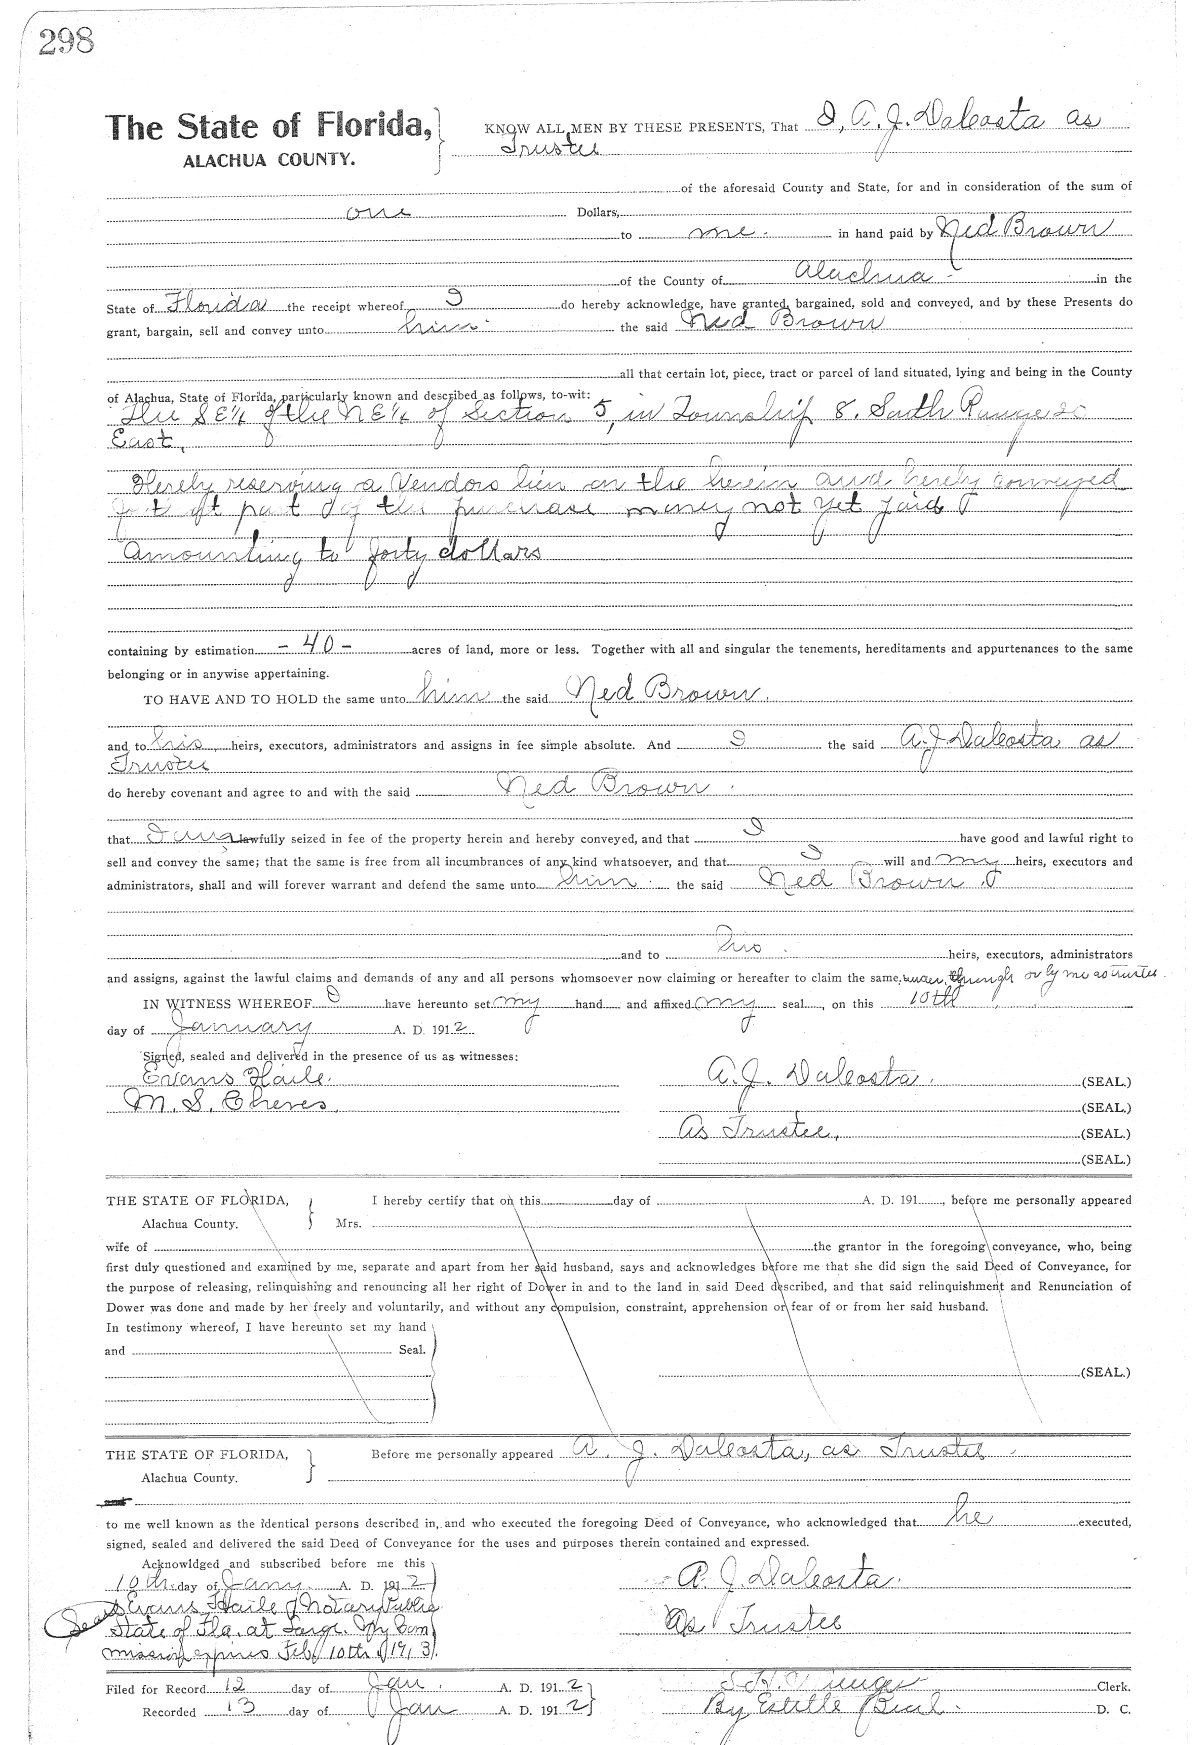 298
The State of Florida,
ALACHUA COUNTY.
KNOW ALL MEN BY THESE PRESENTS, That I, A. J. DaCosta as
Trustee
of the aforesaid County and State, for and in consideration of the sum of
one Dollars,
to me. in hand paid by Ned Brown
of the County of Alachua in the
State of Florida the receipt whereof I do hereby acknowledge, have granted, bargained, sold and conveyed, and by these Presents do
grant, bargain, sell and convey unto him the said Ned Brown
all that certain lot, piece, tract or parcel of land situated, lying and being in the County
of Alachua, State of Florida, particularly known and described as follows, to-wit:
The S E ¼ of the N E ¼ of Section 5, in Township 8. South Range 20
East,
Hereby reserving a Vendors lien on the herein and hereby conveyed
part of the purchase money not yet paid
Amounting to forty dollars
containing by estimation - 40 - acres of land, more or less. Together with all and singular the tenements, hereditaments and appurtenances to the same
belonging or in anywise appertaining.
TO HAVE AND TO HOLD the same unto him the said Ned Brown.
and to his heirs, executors, administrators and assigns in fee simple absolute. And I the said A. J. DaCosta as
Trustee
do hereby covenant and agree to and with the said Ned Brown.
that I am lawfully seized in fee of the property herein and hereby conveyed, and that I have good and lawful right to
sell and convey the same; that the same is free from all incumbrances of any kind whatsoever, and that I will and my heirs, executors and
administrators, shall and will forever warrant and defend the same unto him the said Ned Brown
and to his heirs, executors, administrators
and assigns, against the lawful claims and demands of any and all persons whomsoever now claiming or hereafter to claim the same, under, through or by me as trustee.
IN WITNESS WHEREOF I have hereunto set my hand and affixed my seal, on this 10th
day of January A. D. 1912
Signed, sealed and delivered in the presence of us as witnesses:
Evans Haile. A. J. DaCosta. (SEAL.)
M. S. Cheves, (SEAL.)
As Trustee, (SEAL.)
(SEAL.)
THE STATE OF FLORIDA, I hereby certify that on this day of A. D. 191 , before me personally appeared
Alachua County. Mrs.
wife of the grantor in the foregoing conveyance, who, being
first duly questioned and examined by me, separate and apart from her said husband, says and acknowledges before me that she did sign the said Deed of Conveyance, for
the purpose of releasing, relinquishing and renouncing all her right of Dower in and to the land in said Deed described, and that said relinquishment and Renunciation of
Dower was done and made by her freely and voluntarily, and without any compulsion, constraint, apprehension or fear of or from her said husband.
In testimony whereof, I have hereunto set my hand
and Seal.
(SEAL.)
THE STATE OF FLORIDA, Before me personally appeared A. J. DaCosta, as Trustee.
Alachua County.
to me well known as the identical persons described in, and who executed the foregoing Deed of Conveyance, who acknowledged that he executed,
signed, sealed and delivered the said Deed of Conveyance for the uses and purposes therein contained and expressed.
Acknowldged and subscribed before me this
10th day of Jany. A. D. 1912 A. J. DaCosta.
Seal Evans Haile Notary Public As Trustee
State of Fla. at Large. My Com
mission expires Feb. 10th 1913.
Filed for Record 12 day of Jan. A. D. 1912 Clerk.
Recorded 13 day of Jan A. D. 1912 By Estelle D. C.